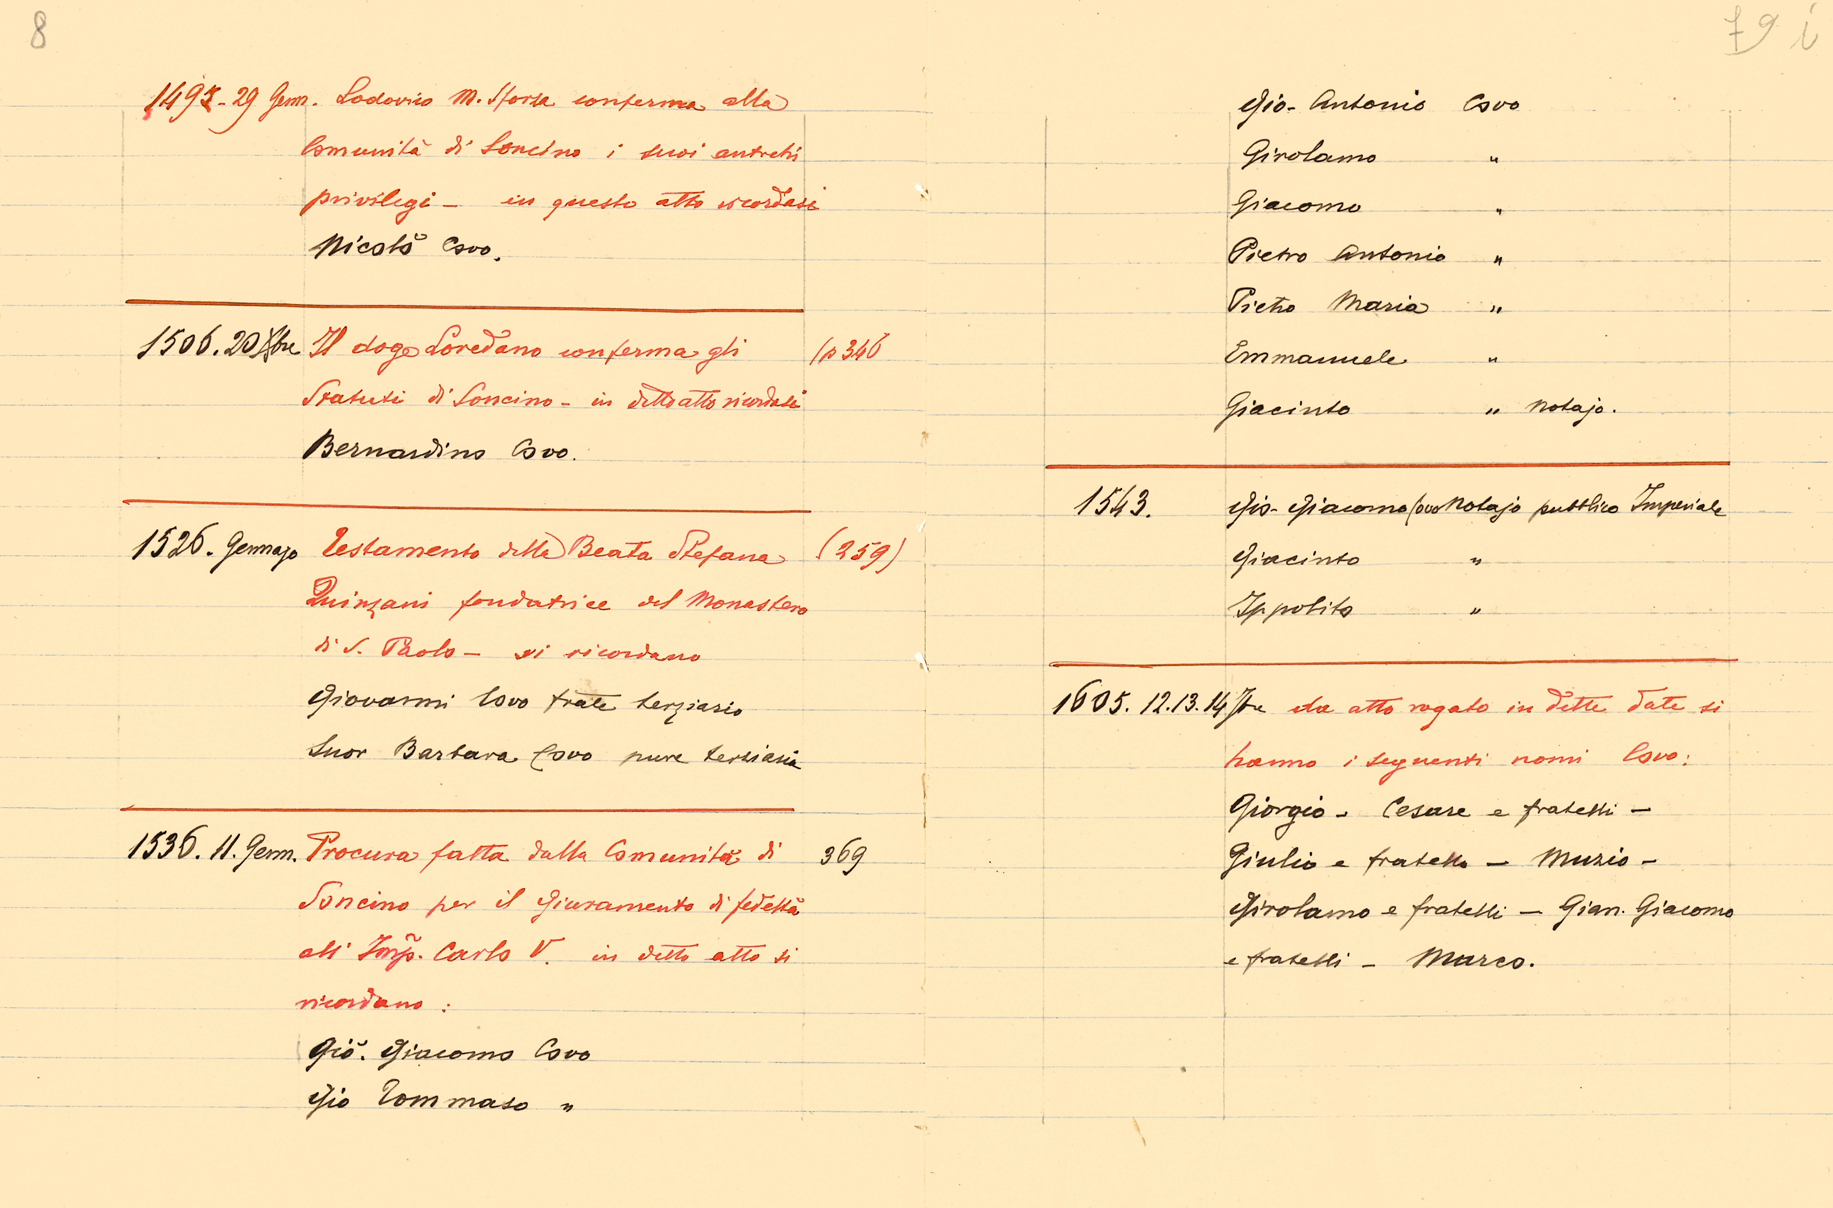 8
1495 - 29 Genn. Lodovico M. Sforza conferma alla
Comunità di Soncino i suoi antichi
privilegi - in questo atto ricordasi
Nicolò Covo.
1506. 20 Xbre Il doge Loredano conferma gli (p 346
Statuti di Soncino - in detto atto ricordasi
Bernardino Covo.
1526. Gennajo Testamento della Beata Stefana (259)
Quinzani fondatrice del Monastero
di S. Paolo - vi ricordano
Giovanni Covo frate terziario
Suor Barbara Covo pure terziaria
1536. 11. Genn. Procura fatta dalla Comunità di 369
Soncino per il Giuramento di fedeltà
all' Imp. Carlo V. in detto atto si
ricordano :
Gio. Giacomo Covo
Gio Tommaso "
79 i
Gio- Antonio Covo
Girolamo "
Giacomo "
Pietro Antonio "
Pietro Maria "
Emmanuele "
Giacinto " notajo.
1543. Gio- Giacomo Covo Notajo pubblico Imperiale
Giacinto "
Ippolito "
1605. 12.13.14 7bre da atto rogato in dette date si
hanno i seguenti nomi Covo:
Giorgio - Cesare e fratelli -
Giulio e fratello - Muzio -
Girolamo e fratelli - Gian. Giacomo
e fratelli - Marco.